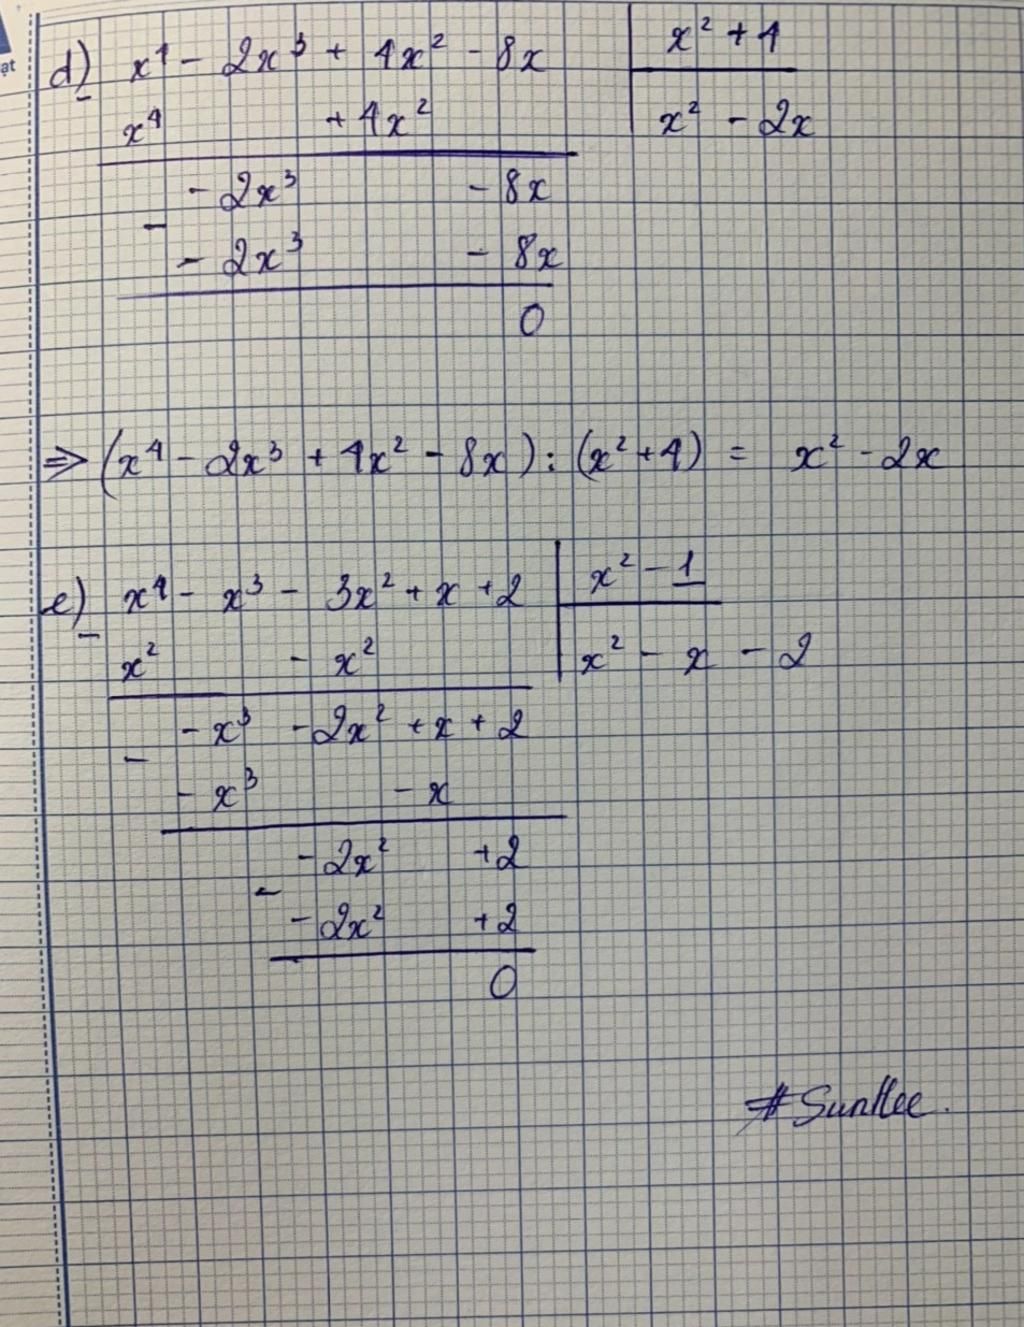 ạt
d) x⁴ - 2x³ + 4x² - 8x | x² + 4
- x⁴ + 4x² | x² - 2x
- 2x³ - 8x
- - 2x³ - 8x
0
⇒ (x⁴ - 2x³ + 4x² - 8x) : (x² + 4) = x² - 2x
e) x⁴ - x³ - 3x² + x + 2 | x² - 1
- x² - x² | x² - x - 2
- x³ - 2x² + x + 2
- - x³ - x
- 2x² + 2
- - 2x² + 2
0
#SunHee.